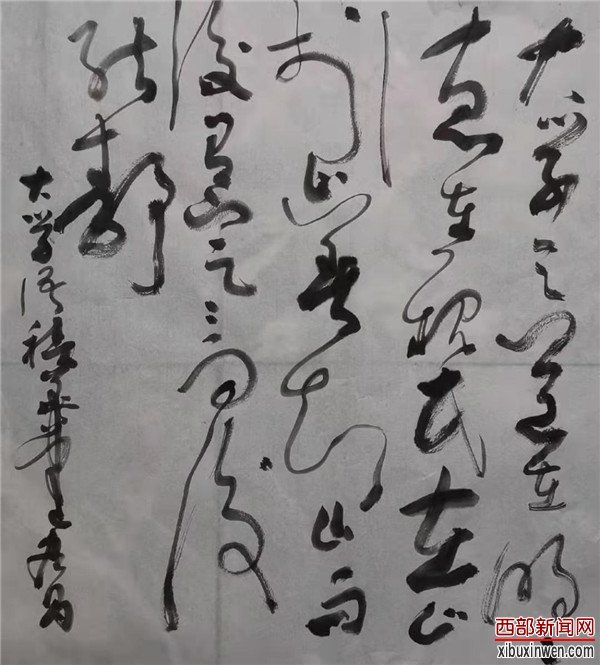 大学之道在明
德在亲民在止
于至善知止而
后有定而后
能静
大学语
西部新闻网
xibuxinwen.com